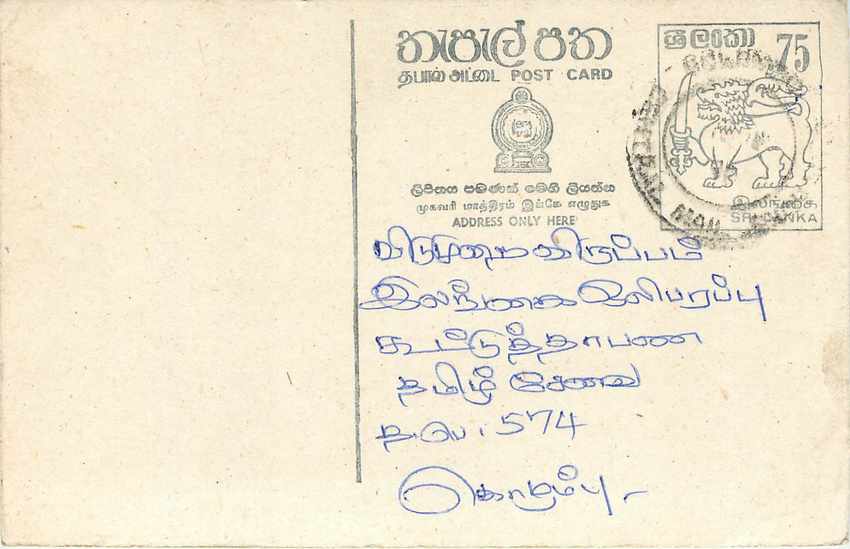 තැපැල් පත
தபால் அட்டை POST CARD
ලිපිනය පමණක් මෙහි ලියන්න
முகவரி மாத்திரம் இங்கே எழுதுக
ADDRESS ONLY HERE
ශ්‍රී ලංකා 75
இலங்கை
SRI LANKA
CENTRAL MAIL
விடுமுறை விருப்பம்
இலங்கை ஒலிபரப்பு
கூட்டுத்தாபண
தமிழ் சேவை
த.பெ. 574
கொழும்பு.